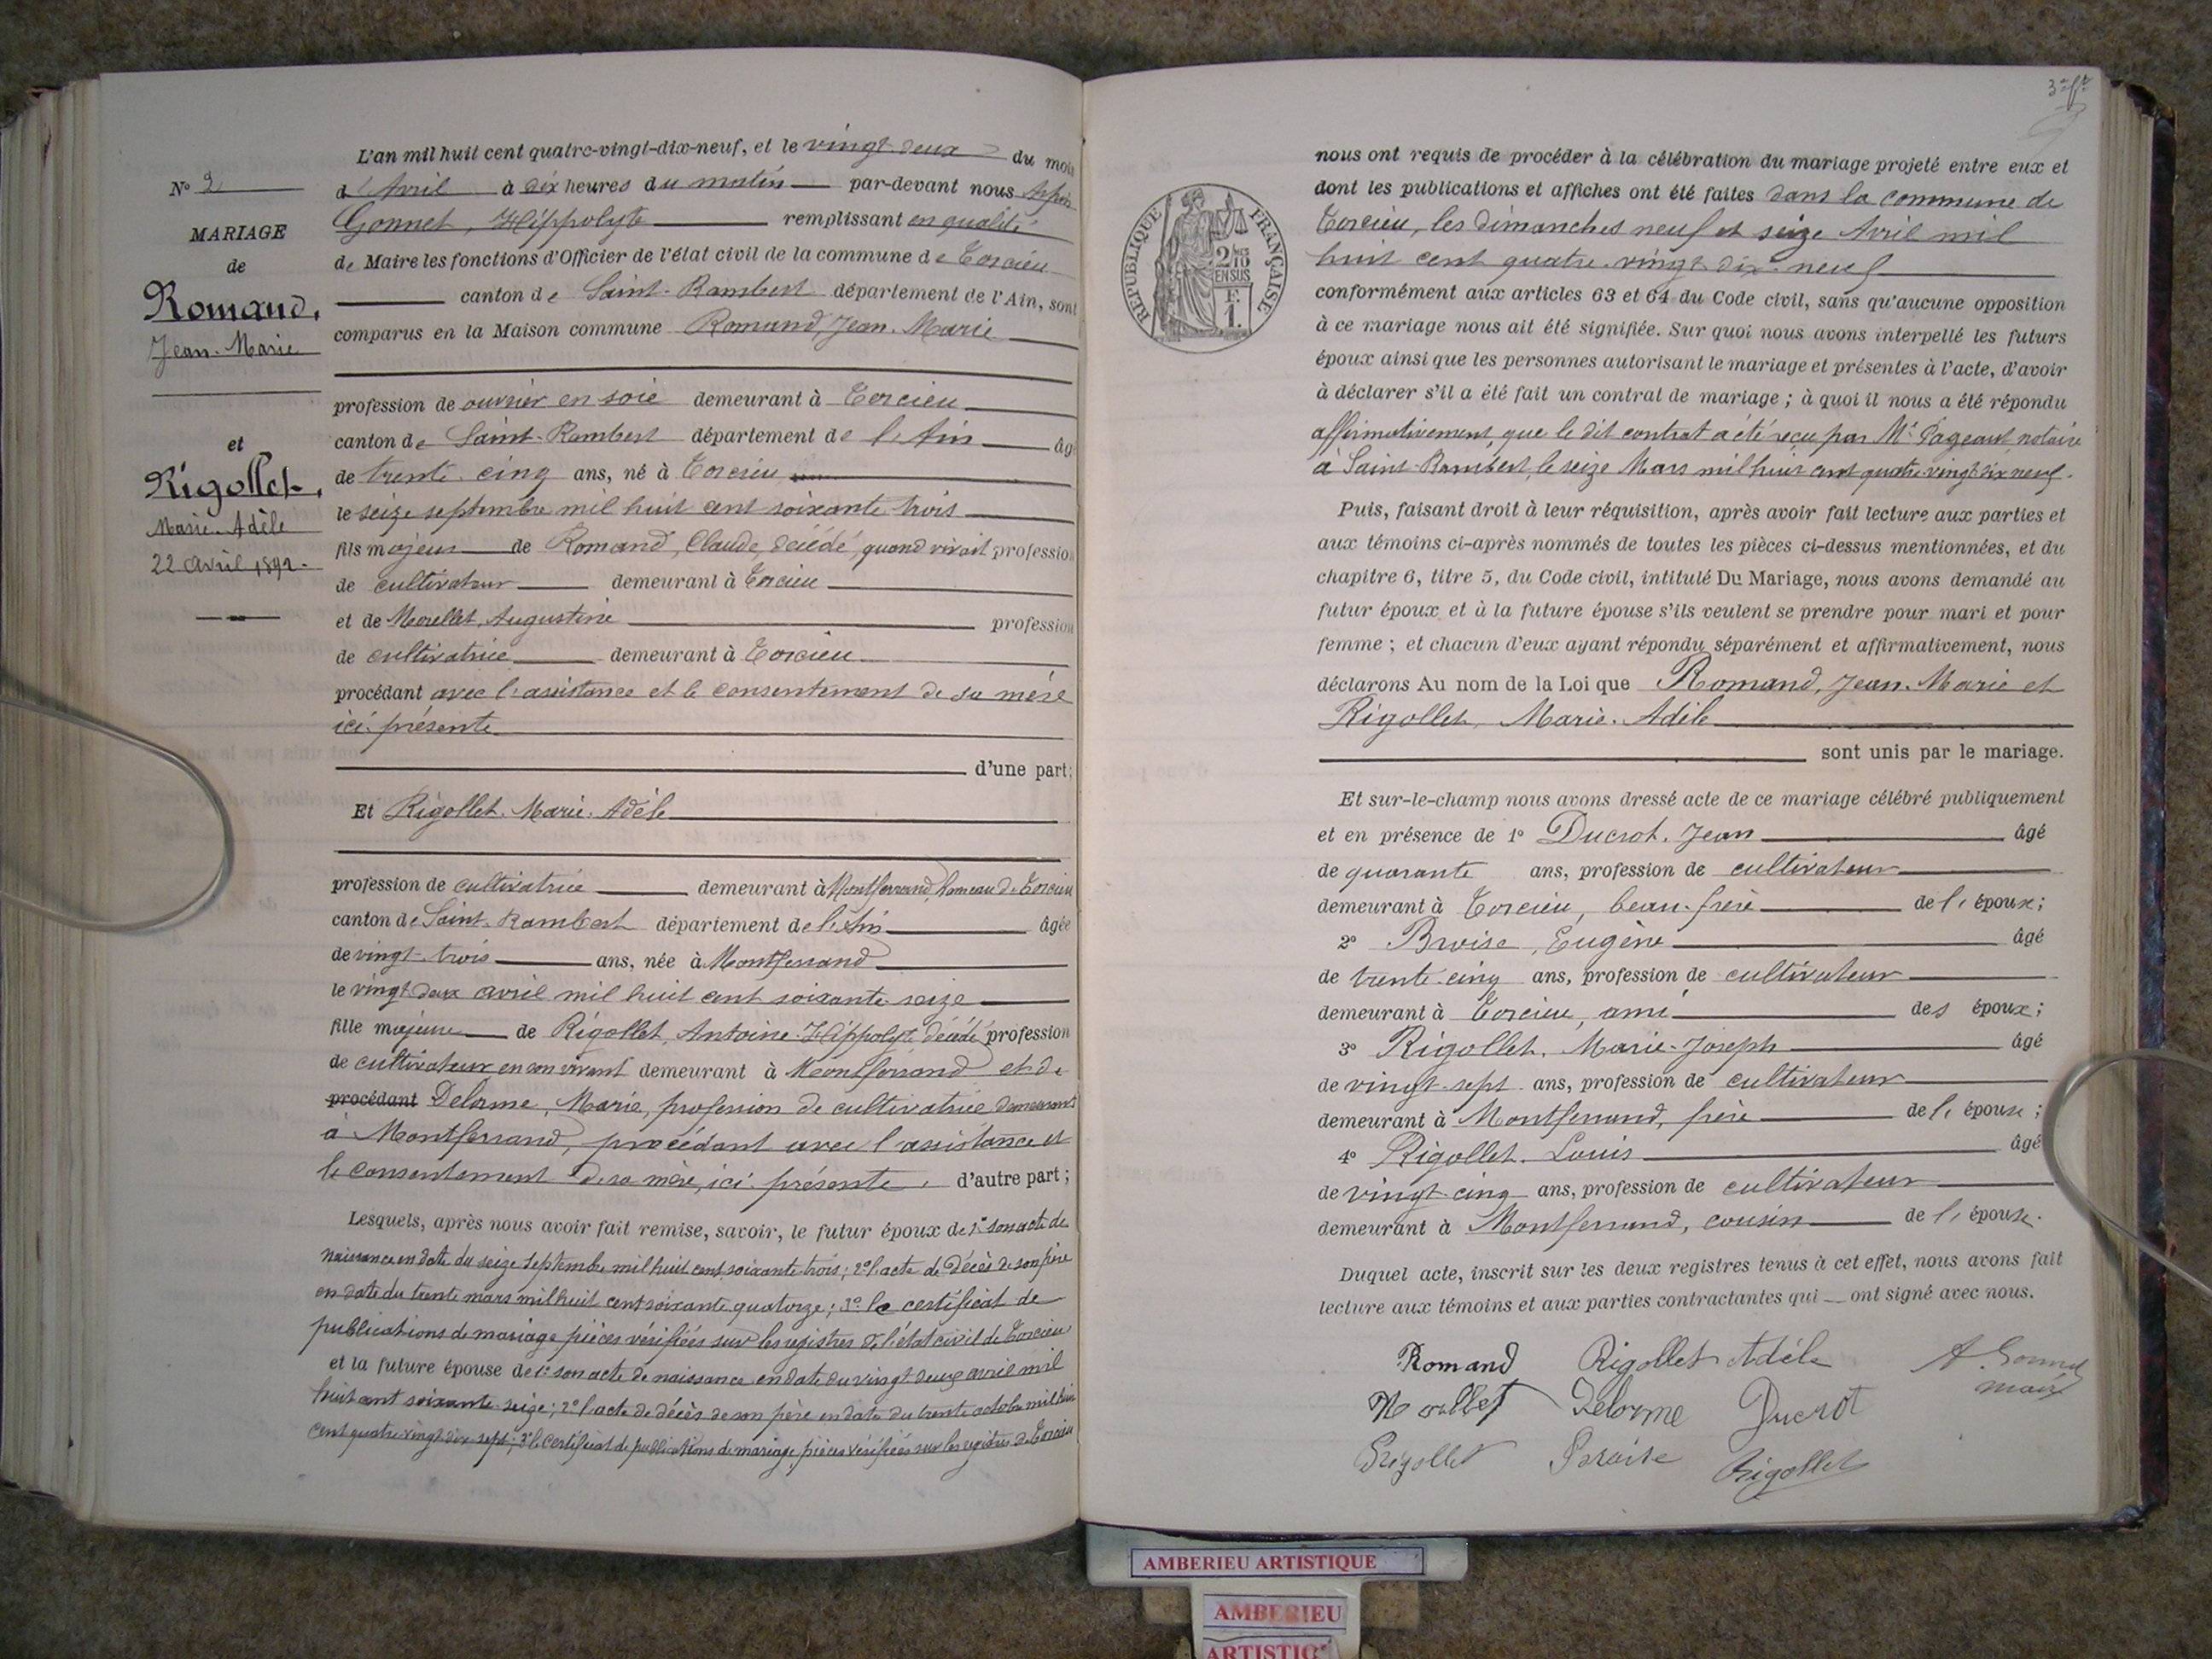 N° 2
MARIAGE
de
Romand,
Jean-Marie
et
Rigollet,
Marie-Adèle
22 avril 1892.
L'an mil huit cent quatre-vingt-dix-neuf, et le vingt-deux du mois
d'Avril à dix heures du matin par-devant nous
Gonnet, Hippolyte remplissant en qualité
de Maire les fonctions d'Officier de l'état civil de la commune de Torcieu
canton de Saint-Rambert département de l'Ain, sont
comparus en la Maison commune Romand, Jean-Marie
profession de ouvrier en soie demeurant à Torcieu
canton de Saint-Rambert département de l'Ain âgé
de trente-cinq ans, né à Torcieu
le seize septembre mil huit cent soixante trois
fils majeur de Romand, Claude, décédé, quand vivait profession
de cultivateur demeurant à Torcieu
et de Morellet, Augustine profession
de cultivatrice demeurant à Torcieu
procédant avec l'assistance et le consentement de sa mère
ici présente
d'une part;
Et Rigollet, Marie-Adèle
profession de cultivatrice demeurant à Montferrand, hameau de Torcieu
canton de Saint-Rambert département de l'Ain âgée
de vingt-trois ans, née à Montferrand
le vingt deux avril mil huit cent soixante-seize
fille majeure de Rigollet, Antoine-Hippolyte décédé profession
de cultivateur en son vivant demeurant à Montferrand et de
procédant Delorme, Marie, profession de cultivatrice demeurant
à Montferrand, procédant avec l'assistance et
le consentement de sa mère, ici présente, d'autre part;
Lesquels, après nous avoir fait remise, savoir, le futur époux de 1° son acte de
naissance en date du seize septembre mil huit cent soixante trois; 2° l'acte de décès de son père
en date du trente mars mil huit cent soixante quatorze; 3° le certificat de
publications de mariage pièces vérifiées sur les registres de l'état civil de Torcieu
et la future épouse de 1° son acte de naissance en date du vingt deux avril mil
huit cent soixante-seize; 2° l'acte de décès de son père en date du trente octobre mil huit
cent quatre vingt dix sept; 3° le certificat de publications de mariage, pièces vérifiées sur les registres de Torcieu
RÉPUBLIQUE FRANÇAISE
2/10
EN SUS
F.
1.
nous ont requis de procéder à la célébration du mariage projeté entre eux et
dont les publications et affiches ont été faites dans la commune de
Torcieu, les dimanches neuf et seize Avril mil
huit cent quatre-vingt dix-neuf
conformément aux articles 63 et 64 du Code civil, sans qu'aucune opposition
à ce mariage nous ait été signifiée. Sur quoi nous avons interpellé les futurs
époux ainsi que les personnes autorisant le mariage et présentes à l'acte, d'avoir
à déclarer s'il a été fait un contrat de mariage; à quoi il nous a été répondu
affirmativement, que le dit contrat a été reçu par Me Pageaut notaire
à Saint-Rambert, le seize Mars mil huit cent quatre-vingt dix neuf.
Puis, faisant droit à leur réquisition, après avoir fait lecture aux parties et
aux témoins ci-après nommés de toutes les pièces ci-dessus mentionnées, et du
chapitre 6, titre 5, du Code civil, intitulé Du Mariage, nous avons demandé au
futur époux et à la future épouse s'ils veulent se prendre pour mari et pour
femme; et chacun d'eux ayant répondu séparément et affirmativement, nous
déclarons Au nom de la Loi que Romand, Jean-Marie et
Rigollet, Marie-Adèle
sont unis par le mariage.
Et sur-le-champ nous avons dressé acte de ce mariage célébré publiquement
et en présence de 1° Ducrot, Jean âgé
de quarante ans, profession de cultivateur
demeurant à Torcieu, beau-frère de l'époux;
2° Broise, Eugène âgé
de trente-cinq ans, profession de cultivateur
demeurant à Torcieu, ami des époux;
3° Rigollet, Marie-Joseph âgé
de vingt-sept ans, profession de cultivateur
demeurant à Montferrand, frère de l'épouse;
4° Rigollet, Louis âgé
de vingt-cinq ans, profession de cultivateur
demeurant à Montferrand, cousin de l'épouse.
Duquel acte, inscrit sur les deux registres tenus à cet effet, nous avons fait
lecture aux témoins et aux parties contractantes qui ont signé avec nous.
Romand Rigollet Adèle H. Gonnet
maire
Morellet Delorme Ducrot
Rigollet Broise Rigollet
AMBERIEU ARTISTIQUE
AMBERIEU
ARTISTIQ